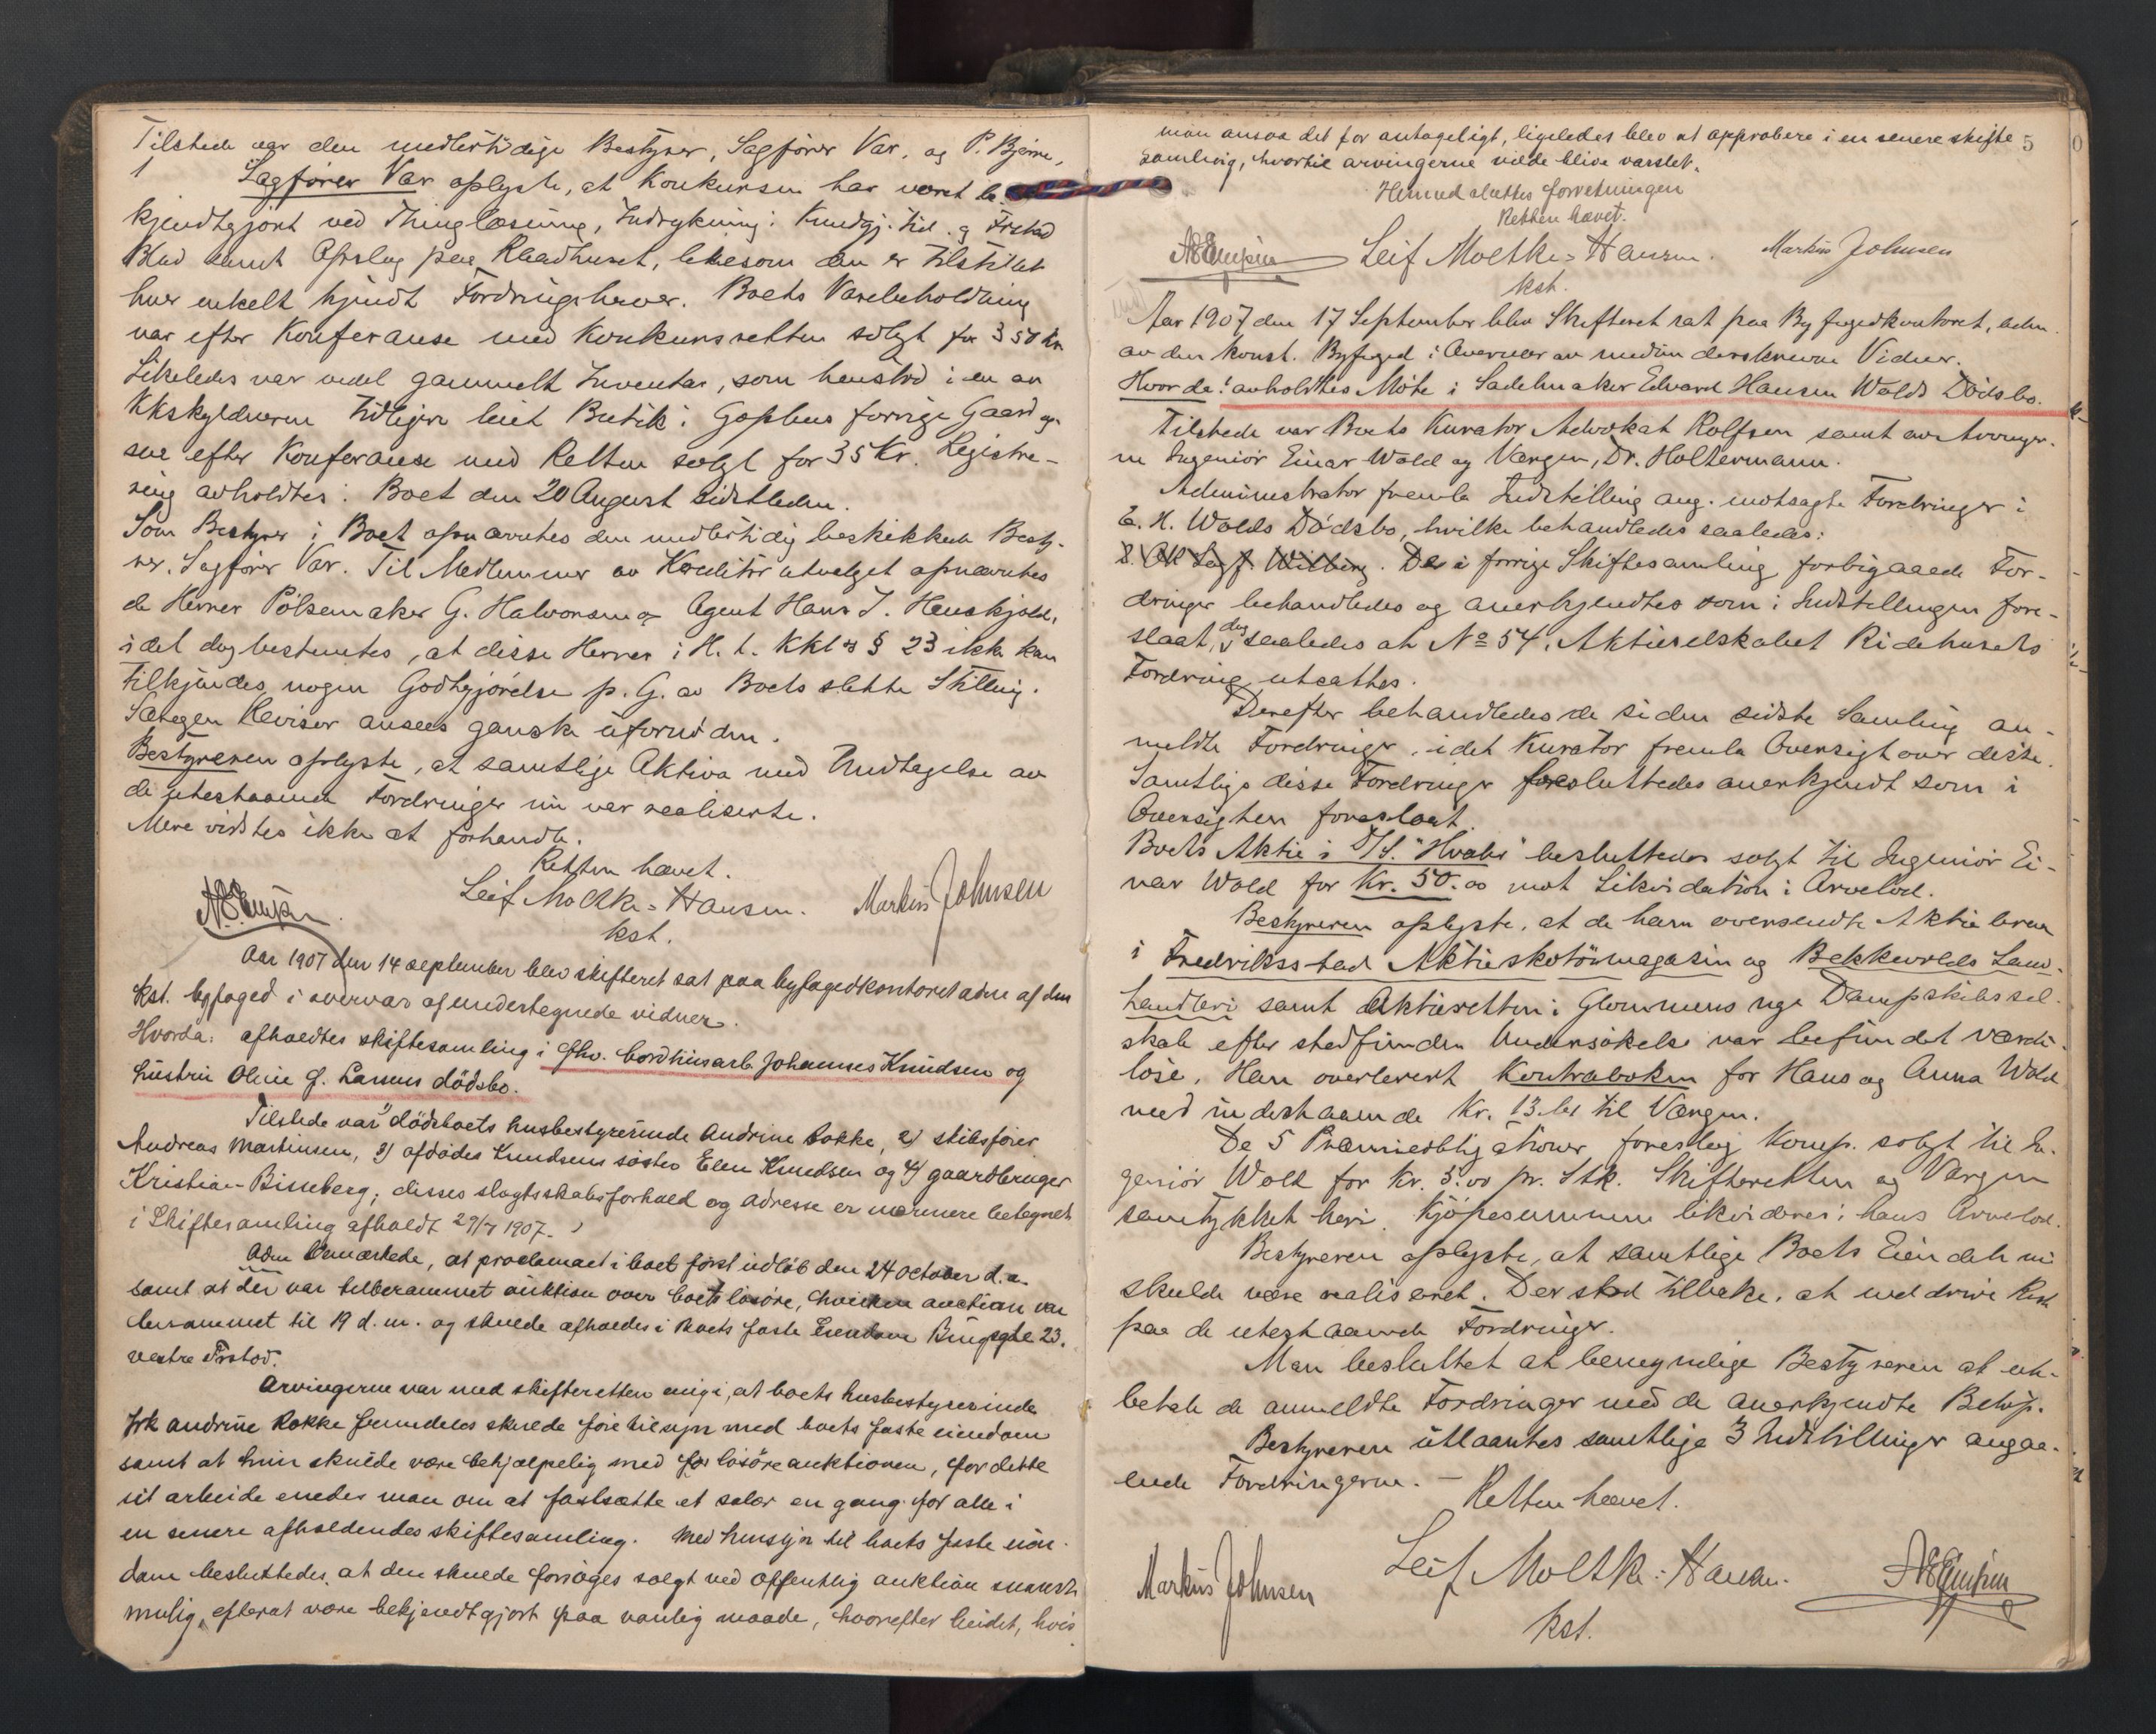 Tilstede var den midlertidige Bestyrer, Sagfører Var, og P. Bjerre,
Sagfører Var oplyste, at Konkursen har været be-
kjendtgjort ved Thinglæsning, Indrykning i Kundgj. tid. og Frstad
Blad samt Opslag paa Raadhuset, likesom den er tilstillet
hver enkelt kjendt Fordringshaver. Boets Varebeholdning
var efter Konferanse med Konkursretten solgt for 350 kr
Likeledes var endel gammelt Inventar, som henstod i en av
Kkskyldneren tidligere leiet Butik i Gophus forrige Gaard og-
saa efter Konferanse med Retten solgt for 35 Kr. Registre-
ring avholdtes i Boet den 20 August sidstleden.
Som Bestyrer i Boet opnævntes den midlertidig beskikkede Besty-
rer, Sagfører Var. Til Medlemmer av Kreditorutvalget opnævntes
de Herrer Pølsemaker G. Halvorsen og Agent Hans J. Henskjold,
idet dog bestemtes, at disse Herrer i H. t. Kkl's § 23 ikke kan
tilkjendes nogen Godtgjørelse p. G. av Boets slette Stilling.
Særegen Revisor ansees ganske ufornøden.
Bestyreren oplyste, at samtlige Aktiva med Undtagelse av
de utestaaende Fordringer nu var realiserte.
Mere vidstes ikke at forhandle.
Retten hævet.
Leif Moltke-Hansen. Markus Johnsen
kst.
Aar 1907 den 14 september blev skifteret sat paa byfogedkontoret adm af den
kst. byfoged i overvær af undertegnede vidner.
Hvorda: afholdtes skiftesamling i fhv. bordhusarb. Johannes Knudsen og
hustru Oline G. Larsens dødsbo.
Tilstede var 1) dødsboets husbestyrerinde Andrine Rokke, 2) skibsfører
Andreas Martinsen, 3) afdødes Knudsens søster Elen Knudsen og 4) gaardbruger
Kristian Bisseberg; disses slagtsskabsforhold og adresse er nærmere betegnet
i Skiftesamling afholdt 29/7 1907.
Adm bemærkede, at proclamaet i boet først udløb den 24 october d. a.
samt at der var tilberammet auktion over boets løsøre, hvilken auction var
berammet til 19 d. m. og skulde afholdes i Boets faste Eiendom Bingsgt. 23.
vestre Frstad.
Arvingerne var med skifteretten enig i, at boets husbestyrerinde
frk Andrine Rokke fremdeles skulde føre tilsyn med boets faste eiendom
samt at hun skulde være behjælpelig med for løsøreauktionen, for dette
sit arbeide enedes man om at fastsætte et salær en gang for alle i
en senere afholdendes skiftesamling. Med hensyn til boets faste eien-
dom besluttedes, at den skulde forsøges solgt ved offentlig auktion snarest
mulig, efterat være bekjendtgjort paa vanlig maade, hvorefter budet, hvis
man ansaa det for antageligt, ligeledes blev at approbere i en senere skifte 5
samling, hvortil arvingerne vilde blive varslet.
Hermed sluttes forretningen
Retten hævet.
Leif Moltke-Hansen. Markus Johnsen
kst.
Aar 1907 den 17 September blev Skifteret sat paa Byfogedkontoret, adm.
av den konst. Byfoged i Overvær av nedenunderskrevne Vidner.
Hvor da: avholdtes Møte i Sadelmaker Edvard Hansen Wolds Dødsbo.
Tilstede var Boets Kurator Advokat Rolfsen samt av Arvinger-
ne Ingeniør Einar Wold og Vergen, Dr. Holtermann.
Administrator fremla Indstilling ang. motsagte Fordringer i
E. H. Wolds Dødsbo, hvilke behandledes saaledes:
De i forrige Skiftesamling forbigaaede For-
dringer behandledes og anerkjendtes som i Indstillingen fore-
slaat, dog saaledes at No 54. Aktieselskabet Ridehusets
Fordring utsattes.
Derefter behandledes de siden sidste Samling an-
meldte Fordringer, idet Kurator fremla Oversigt over disse.
Samtlige disse Fordringer besluttedes anerkjendt som i
Oversigten foreslaat.
Boets Aktie i D/S. "Hvaler" besluttedes solgt til Ingeniør Ei-
nar Wold for Kr. 50.00 mot Likvidation i Arvelod.
Bestyreren oplyste, at de ham oversendte Aktiebreve
i Fredriksstad Aktieskotöimagasin og Bekkevolds Lan-
handleri samt Aktieretten i Glommens nye Dampskibssel-
skab efter stedfunden Undersøkelse var befundet værdi-
løse. Han overleverte Kontraboken for Hans og Anna Wold
med indestaaende Kr. 13.61 til Vergen.
De 5 Præmieobligationer foreslog Komp. solgt til In-
geniør Wold for Kr. 5.00 pr. Stk. Skifteretten og Vergen
samtykket heri. Kjøpesummen likvideres i hans Arvelod.
Bestyreren oplyste, at samtlige Boets Eiendele nu
skulde være realiseret. Der stod tilbake, at inddrive Rest
paa de utestaaende Fordringer.
Man besluttet at bemyndige Bestyreren at ut-
betale de anmeldte Fordringer med de anerkjendte Beløp.
Bestyreren utlaantes samtlige 3 Indstillinger angaa-
ende Fordringerne. — Retten hævet.
Markus Johnsen Leif Moltke-Hansen.
kst.